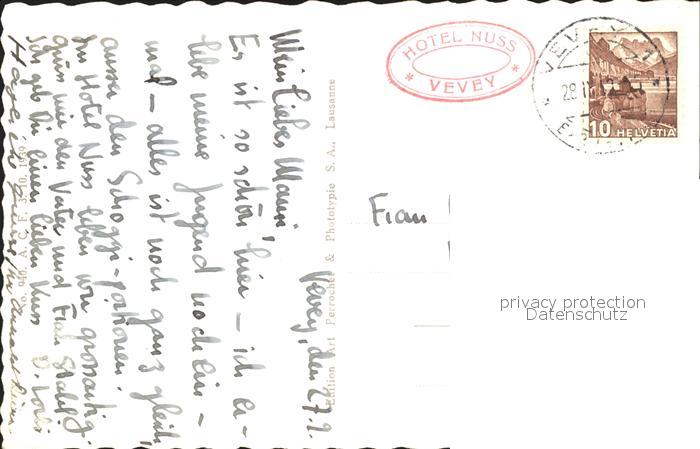 Vevey, den 27. 9.
Mein liebes Mami,
Es ist so schön hier – ich er-
lebe meine Jugend noch ein-
mal – alles ist noch ganz gleich,
ausser den Schoggi-portionen.
Im Hotel Nuss leben wir grossartig.
Grüss mir den Vater und Frau
Ich geb Dir einen lieben Kuss
No. 940. A. C. F. 3. 10. 1939
Edition Art Perrochet & Phototypie S. A., Lausanne
HOTEL NUSS
VEVEY
VEVEY 1
28
10 HELVETIA
Frau
privacy protection
Datenschutz